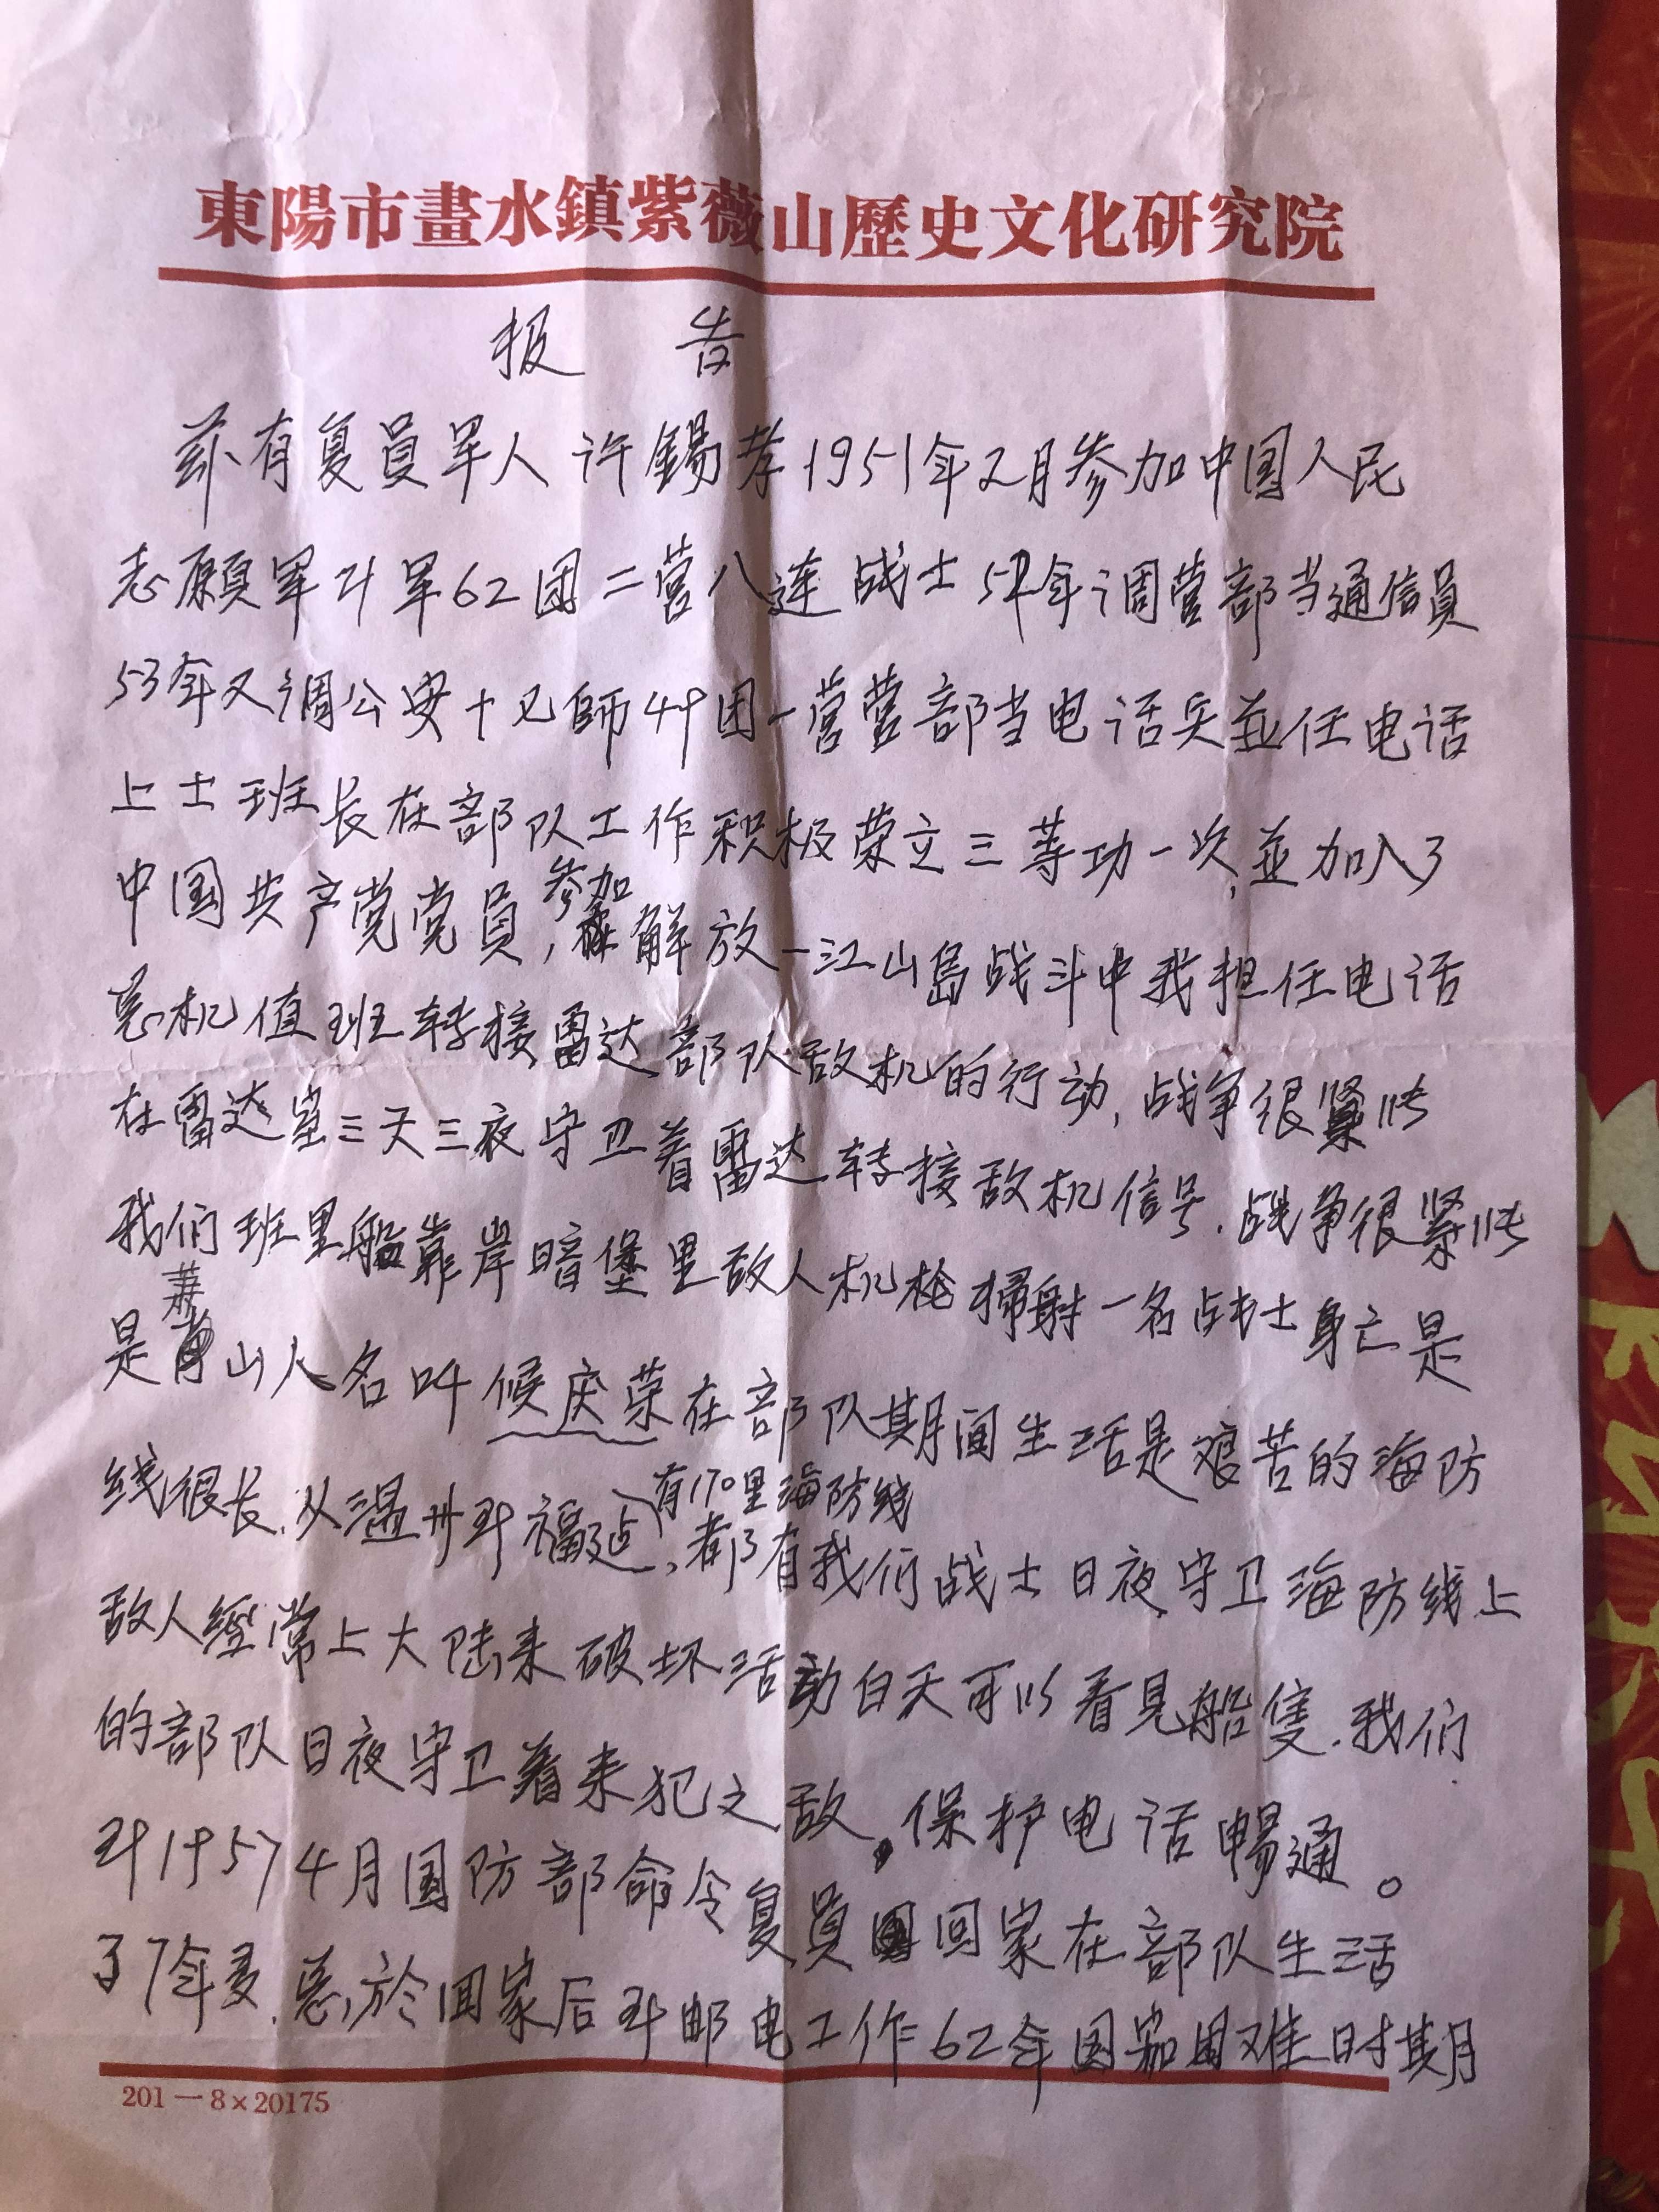 東陽市畫水鎮紫薇山歷史文化研究院
报 告
兹有复員军人许錫孝1951年2月参加中国人民
志願军21军62团二营八连战士52年调营部当通信員
53年又调公安十七師49团一营营部当电话兵並任电话
上士班长在部队工作积极荣立三等功一次,並加入了
中国共产党党員,参加解放一江山島战斗中我担任电话
总机值班转接雷达部队敌机的行动,战争很緊张
在雷达室三天三夜守卫着雷达转接敌机信号.战争很緊张
我们班里船靠岸暗堡里敌人机枪掃射一名战士身亡是
是萧山人名叫候庆荣在部队期间生活是艰苦的海防
线很长.从温州到福延,有170里海防线都有我们战士日夜守卫海防线上
敌人經常上大陆来破坏活动白天可以看見船隻.我们
的部队日夜守卫着来犯之敌。保护电话暢通。
到1957 4月国防部命令复員回家在部队生活
了7年多.总於回家后到邮电工作62年国家困难时期
201－8×20175